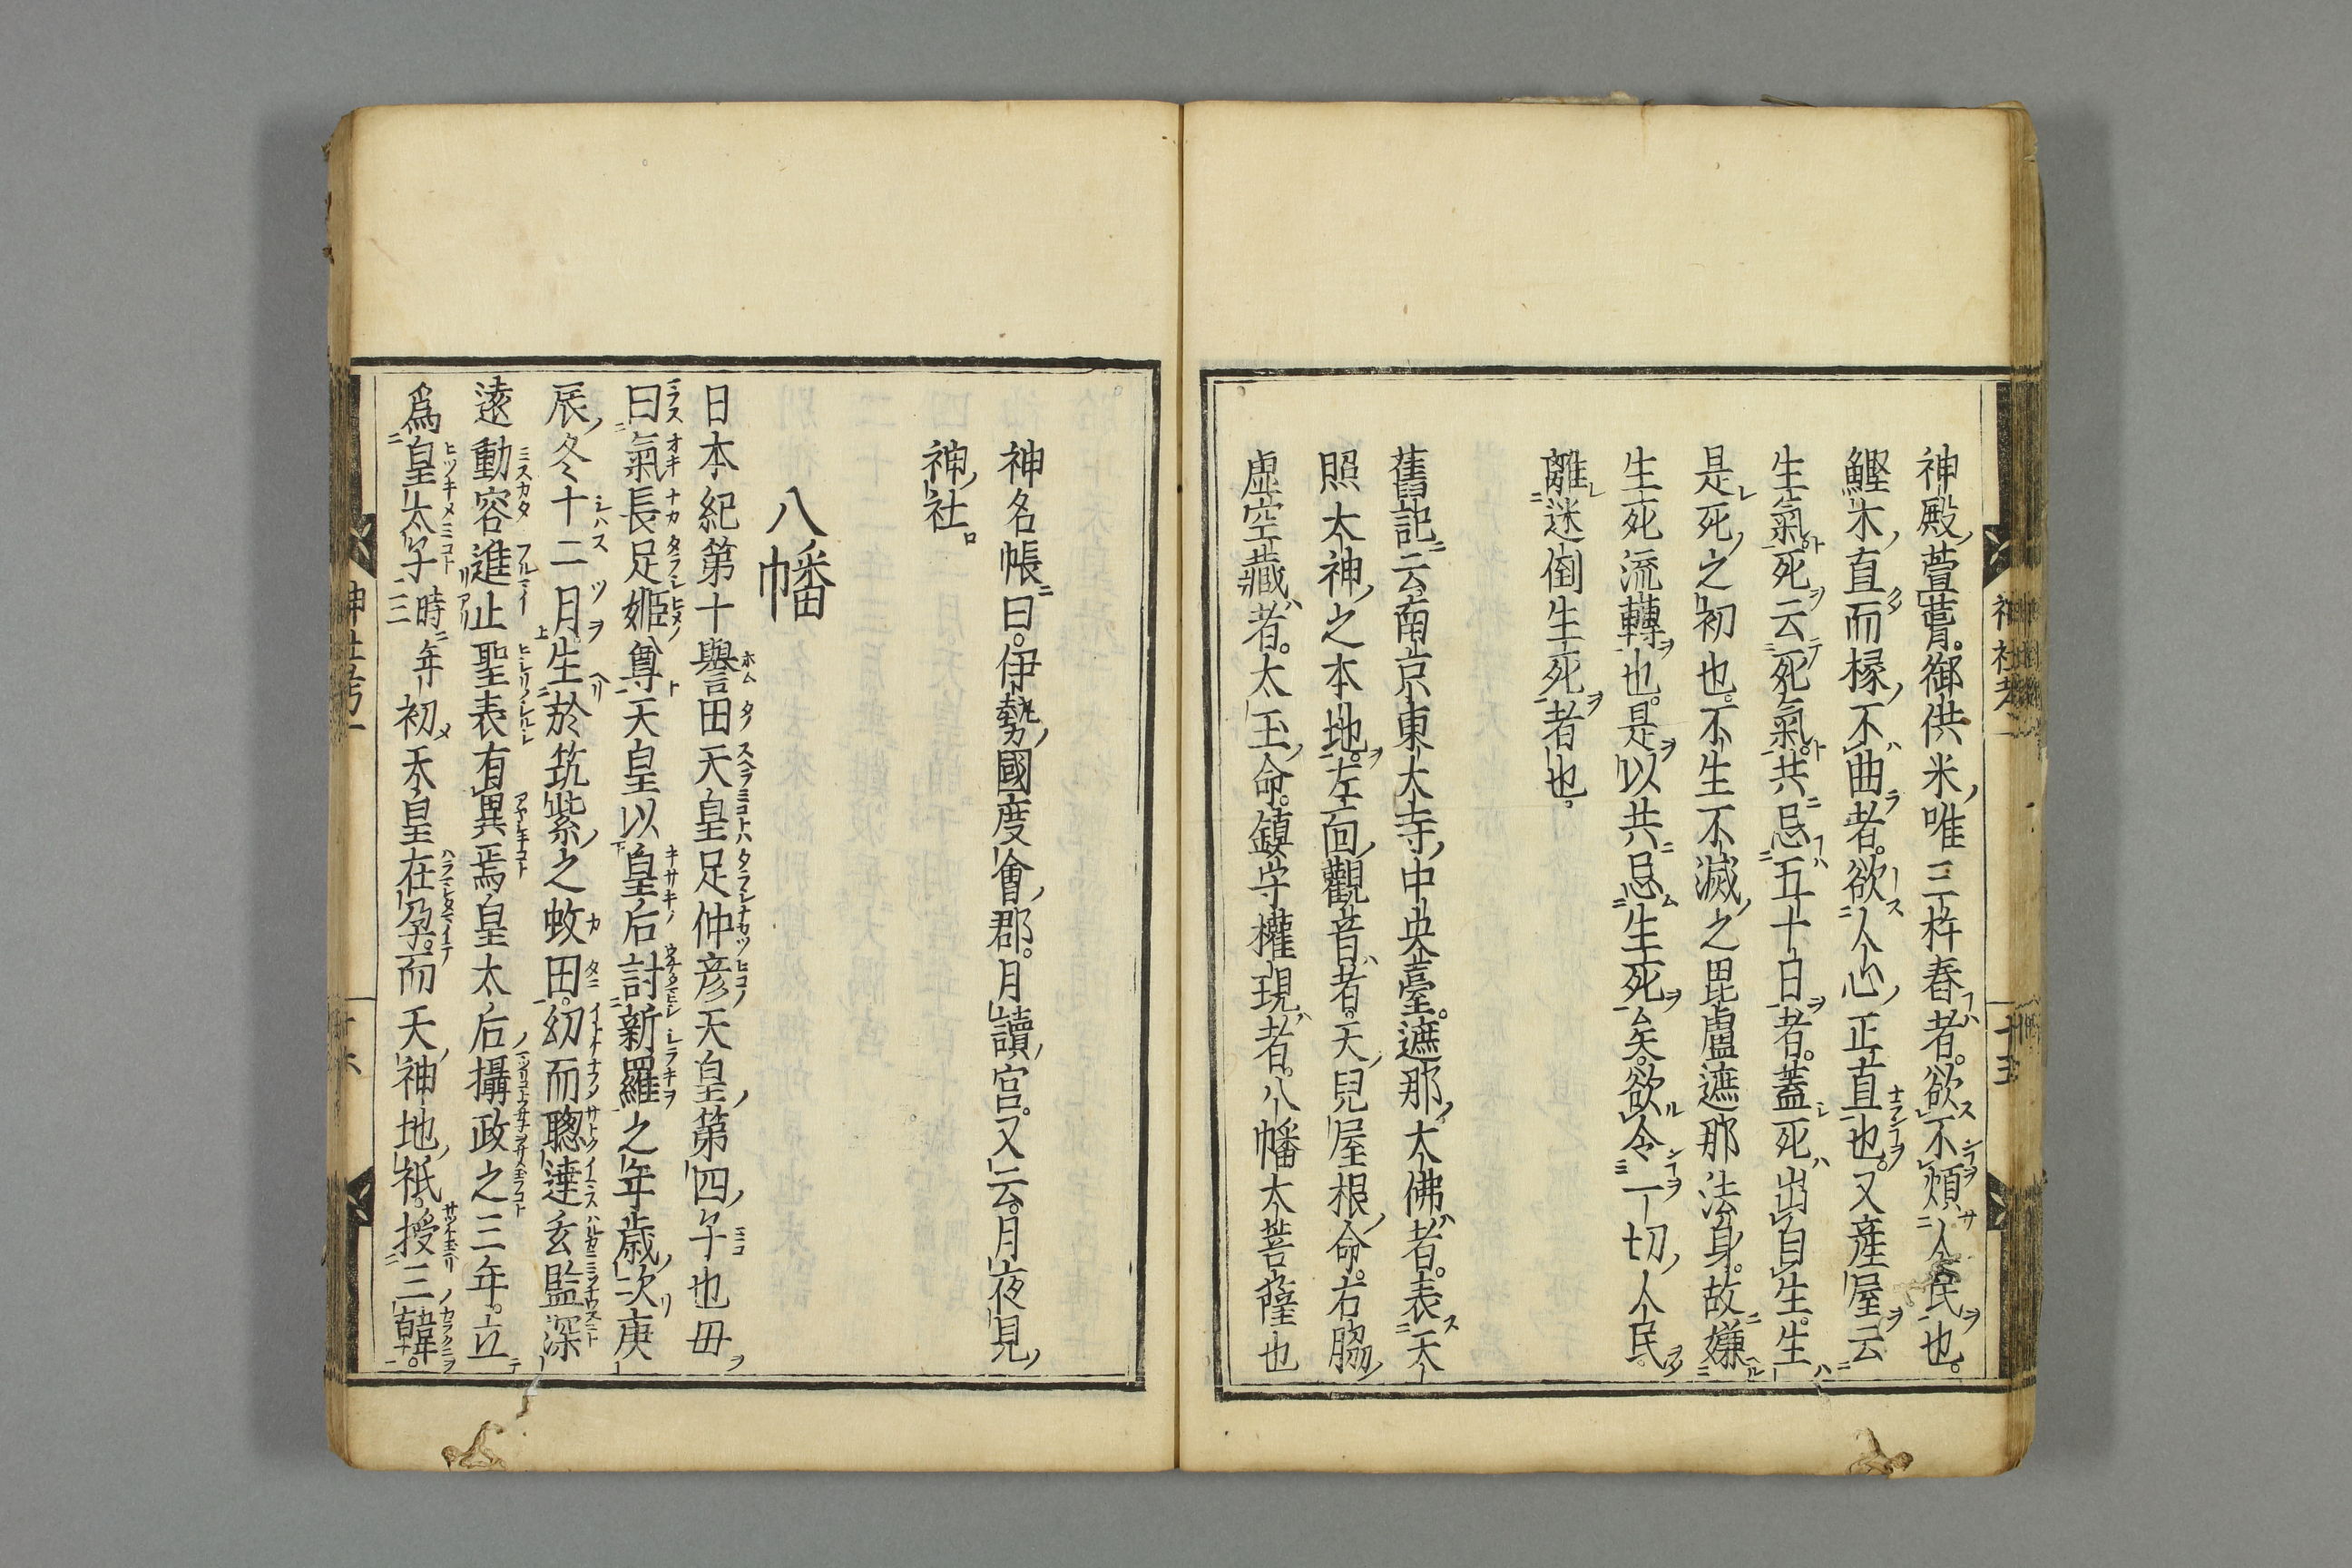 神殿萱葺。御供米唯三杵舂者。欲不煩人民也。
鰹木直而椽不曲者。欲人心正直也。又産屋云
生氣。死云死氣。共忌五十日者。蓋死出自生。生
是死之初也。不生不滅之毘盧遮那法身。故嫌
生死流轉也。是以共忌生死矣。欲令一切人民
離迷倒生死者也。
舊記云。南京東大寺中央臺。遮那大佛者。表天
照太神之本地。左面觀音者。天兒屋根命。右脇
虚空藏者。太玉命。鎮守權現者。八幡大菩薩也
神社考一
十五
神名帳曰。伊勢國度會郡。月讀宮。又云。月夜見
神社。
八幡
日本紀第十譽田天皇足仲彦天皇第四子也母
曰氣長足姫尊天皇以皇后討新羅之年歳次庚
辰冬十二月。生於筑紫之蚊田。幼而聰達玄監深
遠動容進止聖表有異焉皇太后攝政之三年。立
爲皇太子時年三初天皇在孕。而天神地祇。授三韓。
神社考一